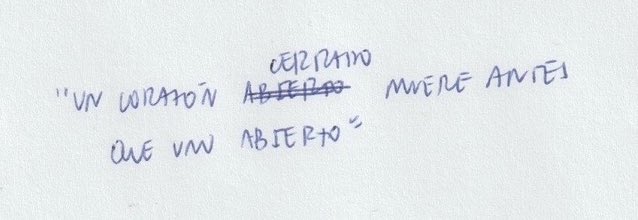 CERRADO
"UN CORAZÓN ABIERTO MUERE ANTES
QUE UNO ABIERTO"